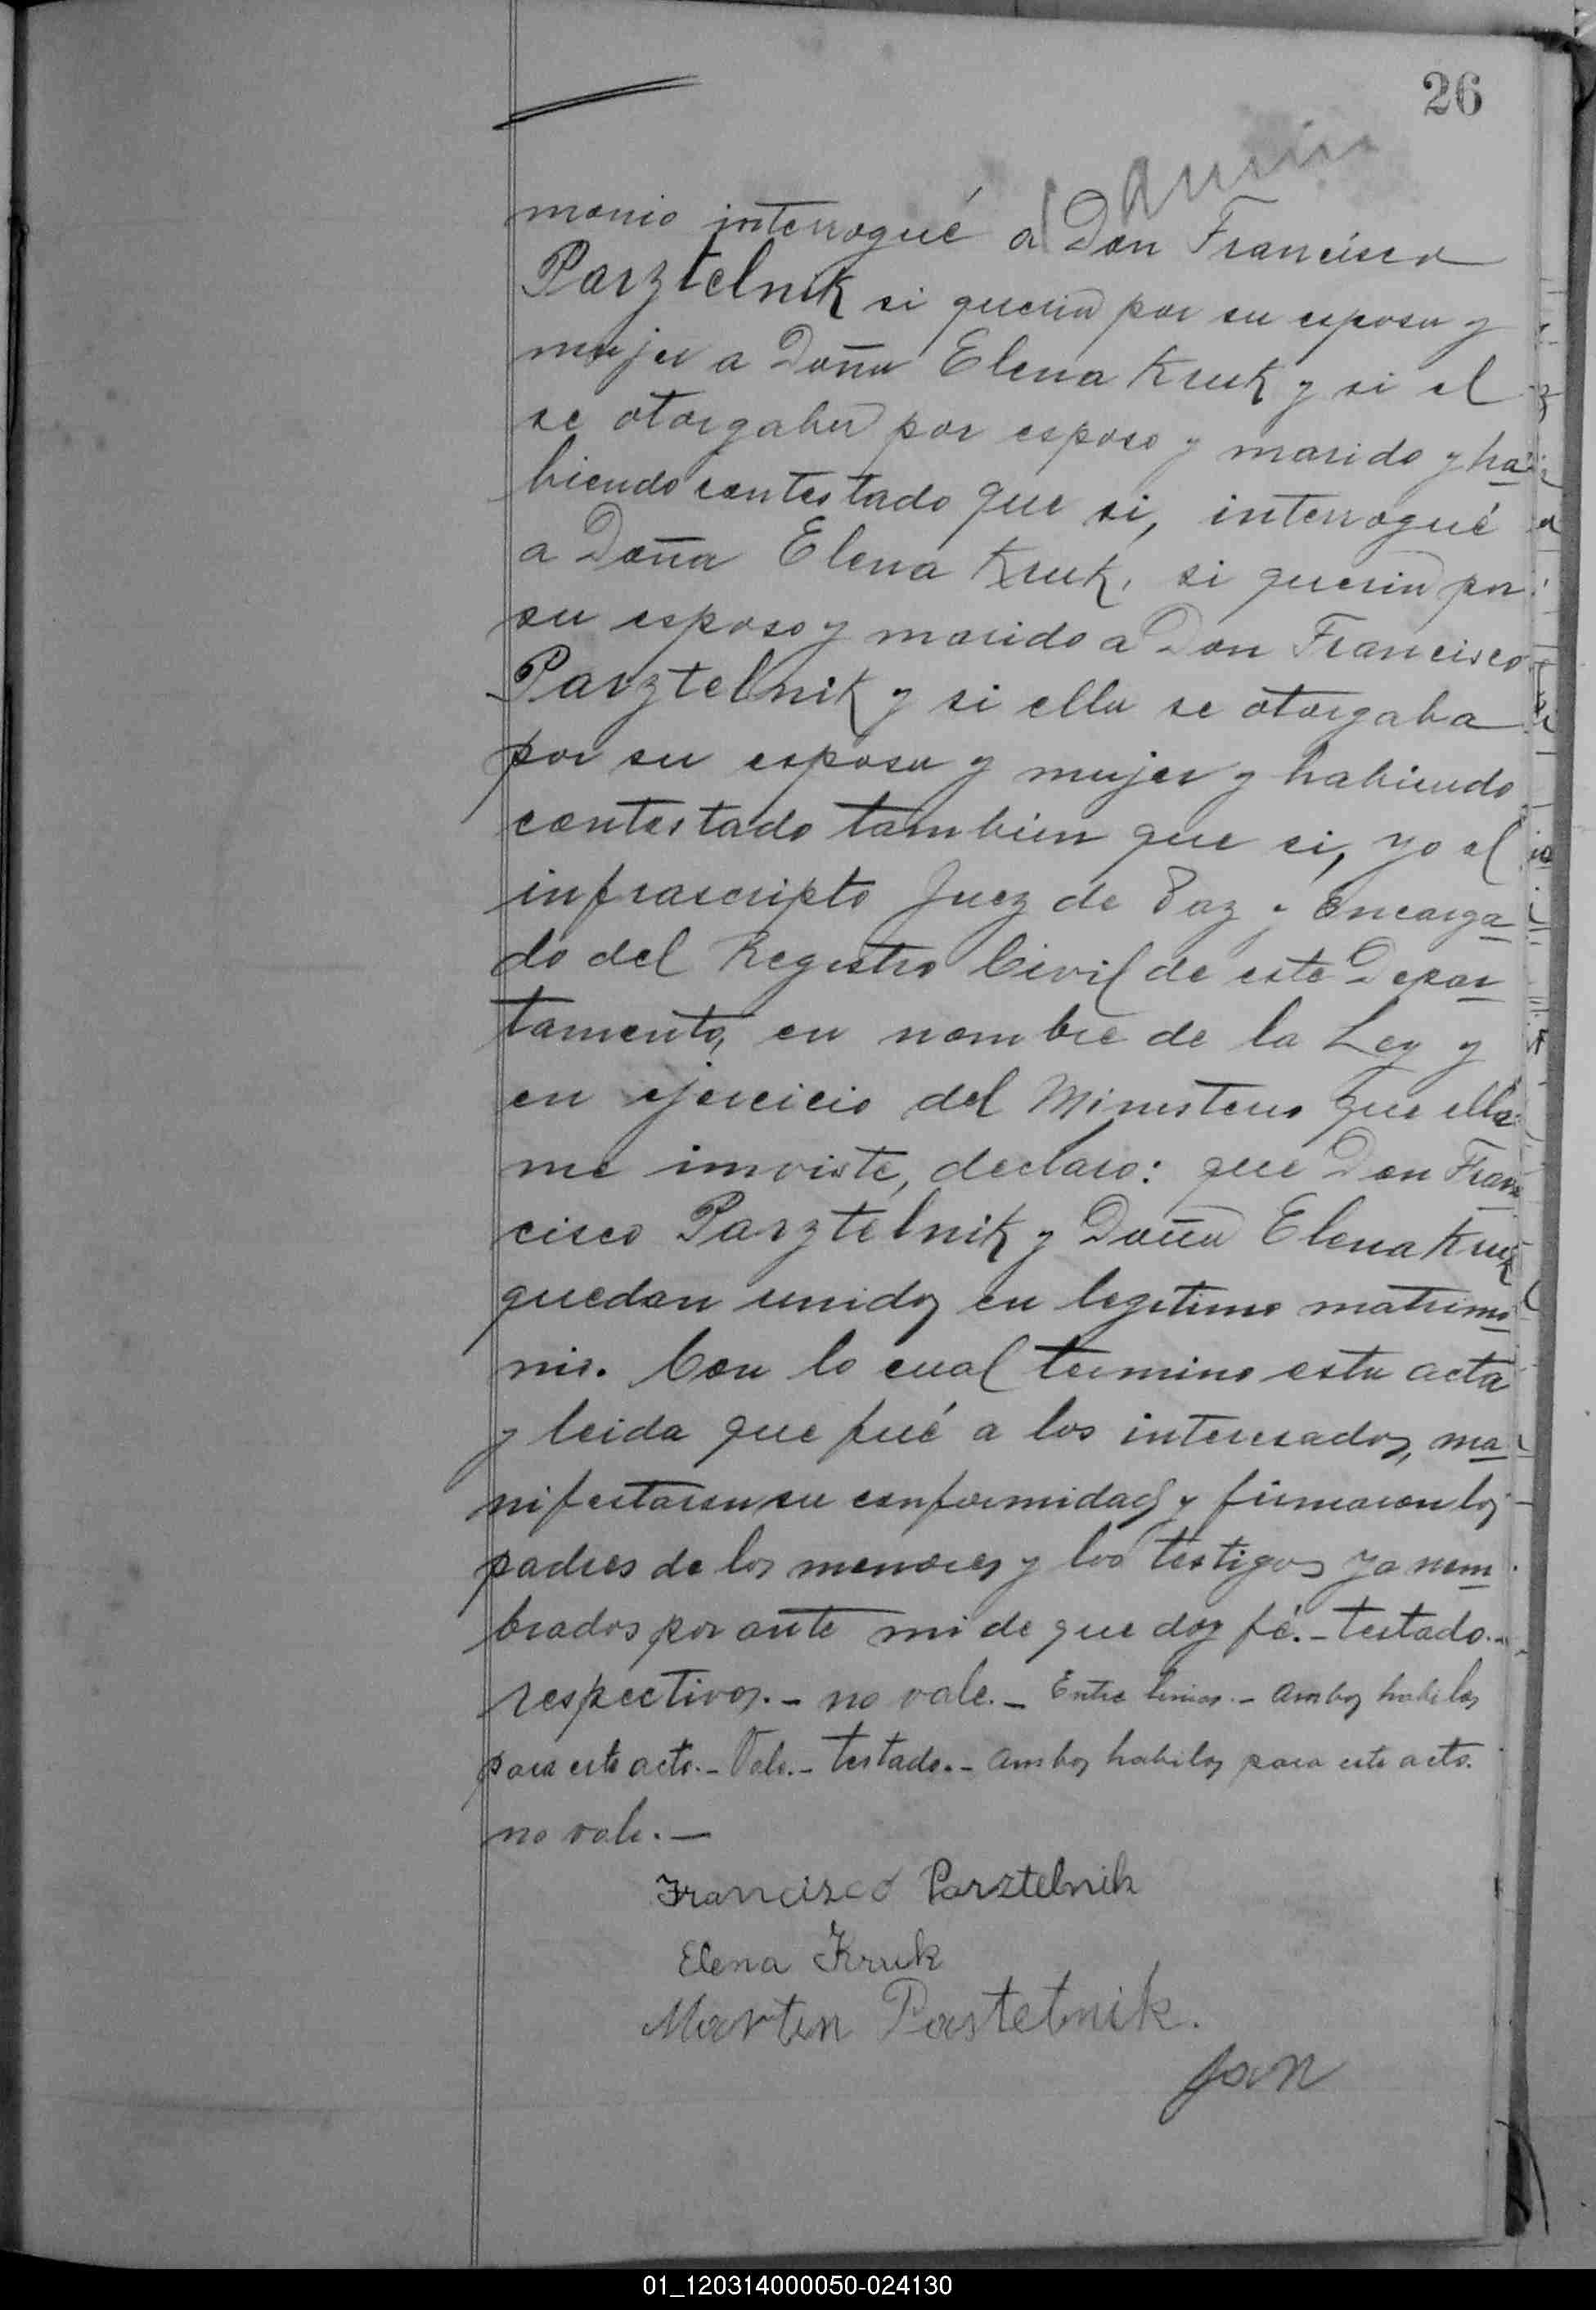 26
monio interrogué a Don Francisco
Parztelnik si queria por su esposa y
mujer a Doña Elena Kruk y si el
se otorgaba por esposo y marido y ha
biendo contestado que si, interrogué
a Doña Elena Kruk, si queria por
su esposo y marido a Don Francisco
Parztelnik y si ella se otorgaba
por su esposa y mujer y habiendo
contestado tambien que si, yo el
infrascripto Juez de Paz y Encarga
do del Registro Civil de este Depar
tamento, en nombre de la Ley y
en ejercicio del Ministerio que ella
me inviste, declaro: que Don Fran
cisco Parztelnik y Doña Elena Kruk
quedan unidos en legitimo matrimo
nio. Con lo cual termino esta acta
y leida que fué a los interesados, ma
nifestaron su conformidad y firmaron los
padres de los menores y los testigos ya nom
brados por ante mi de que doy fé.- testado.-
respectivos.- no vale.- Entre linias.- Ambos habiles
para este acto.- Vale.- testado.- Ambos habiles para este acto.
no vale.-
Francisco Parztelnik
Elena Kruk
Marten Pastetnik.
Jan
01_120314000050-024130